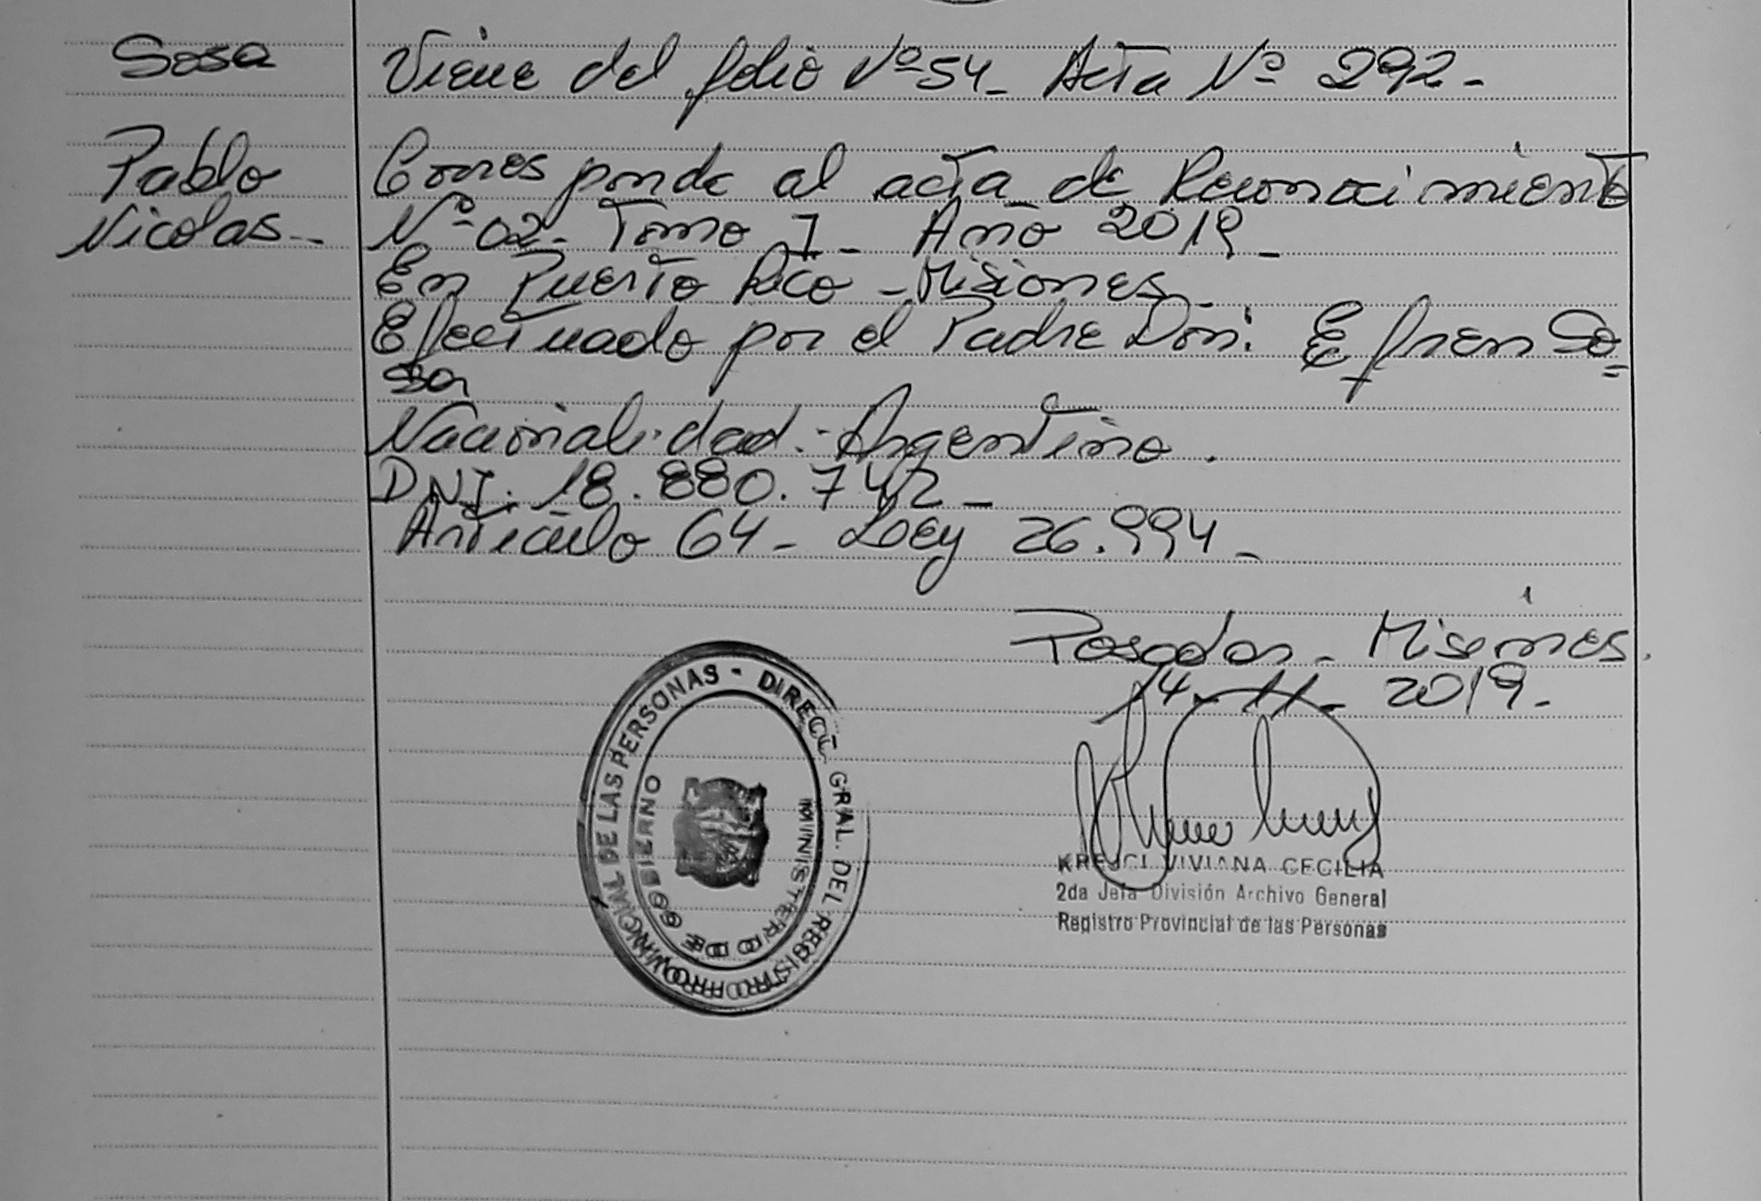 Sosa
Pablo
Nicolas -
Viene del folio Nº 54 - Acta Nº 292 -
Corresponde al acta de Reconocimiento
Nº 02 - Tomo I - Año 2019 -
En Puerto Rico - Misiones -
Efectuado por el Padre Don: Efren So=
sa
Nacionalidad: Argentino.
DNI. 18.880.742 -
Artículo 64 - Ley 26.994 -
Posadas - Misiones.
14 - 11 - 2019 -
DIRECC. GRAL. DEL REGISTRO PROVINCIAL DE LAS PERSONAS -
MINISTERIO DE GOBIERNO
KREJCI VIVIANA CECILIA
2da Jefa División Archivo General
Registro Provincial de las Personas